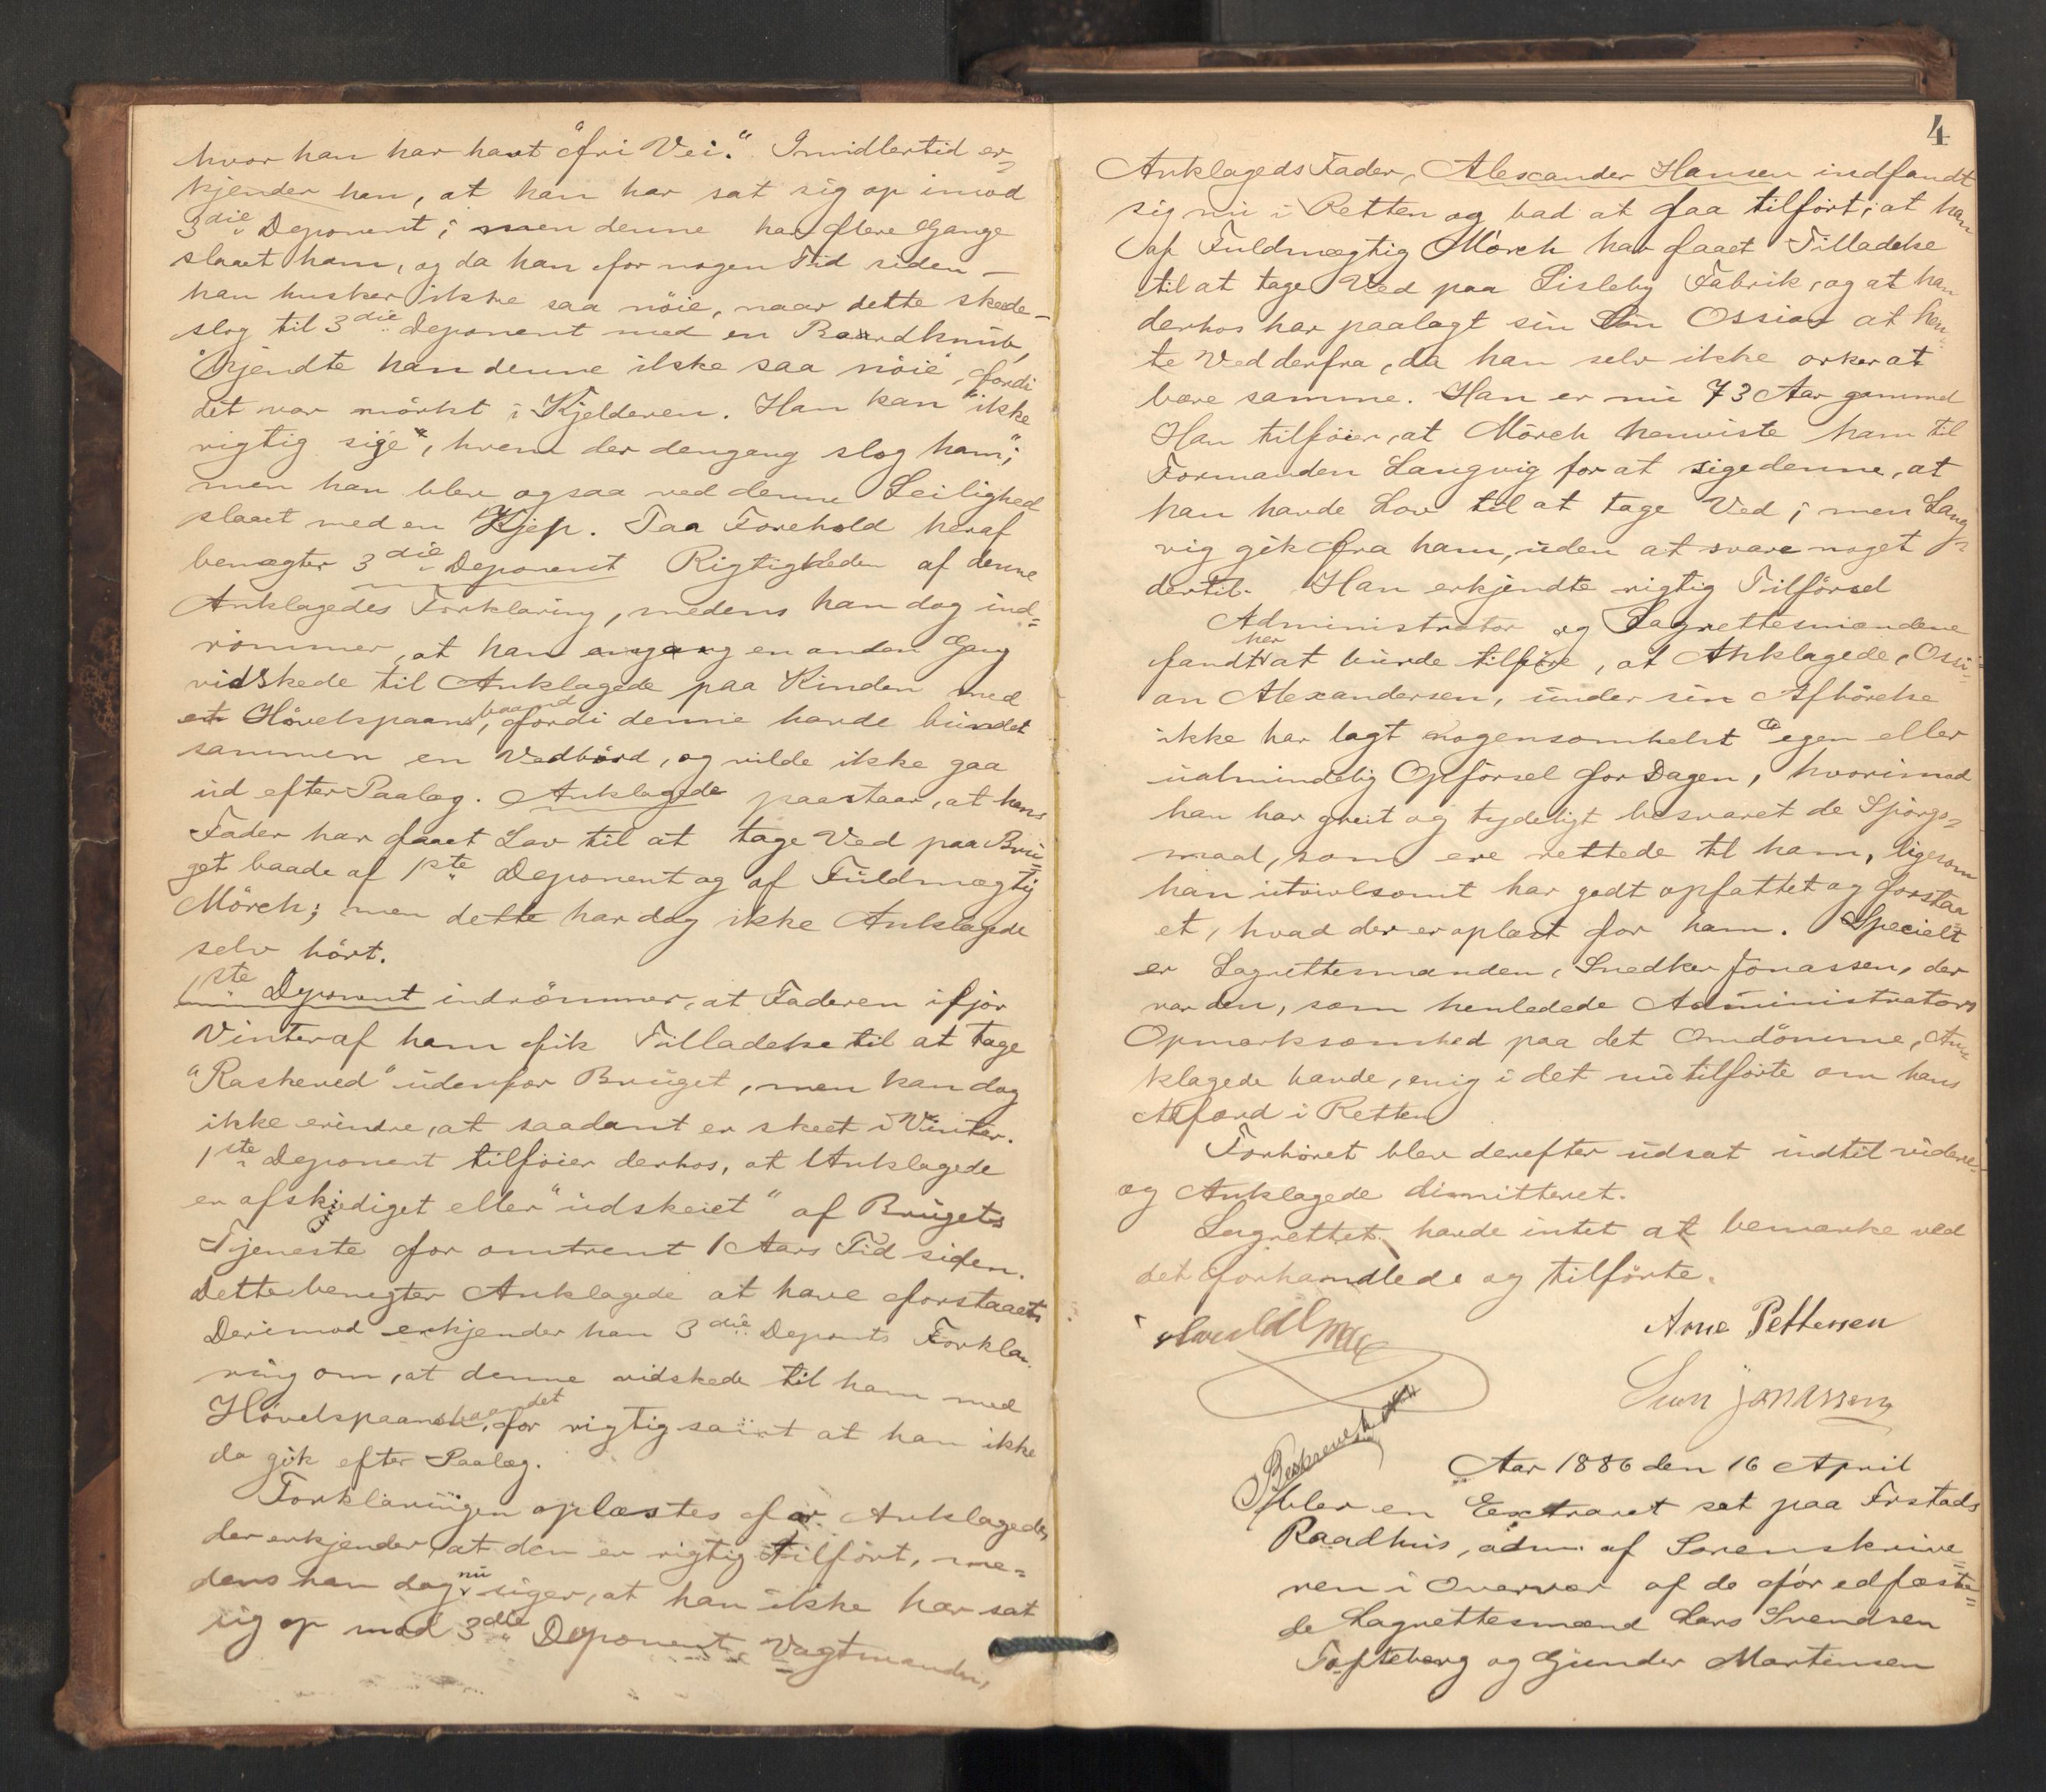 hvor han har havt "fri Vei." Imidlertid er-
kjender han, at han har sat sig op imod
3die Deponent; men denne har flere Gange
slaaet ham, og da han for nogen Tid siden –
han husker ikke saa nöie, naar dette skede –
slog til 3die Deponent med en Bordknub,
kjendte han denne ikke saa nöie, fordi
det var mörkt i Kjelderen. Han kan "ikke
rigtig sige", hvem der dengang slog ham";
men han blev ogsaa ved denne Leilighed
slaaet med en Kjep. Paa Forehold heraf
benægter 3die Deponent Rigtigheden af denne
Anklagedes Forklaring, medens han dog ind=
römmer, at han engang en anden Gang
vidskede til Anklagede paa Kinden med
et Hövelspaansbaand, fordi denne havde bundet
sammen en Vedbörd, og vilde ikke gaa
ud efter Paalæg. Anklagede paastaar, at hans
Fader har faaet Lov til at tage Ved paa Bru=
get baade af 1ste Deponent og af Fuldmægtig
Mörch; men dette har dog ikke Anklagede
selv hört.
1ste Deponent indrömmer, at Faderen ifjor
Vinter af ham fik Tilladelse til at tage
"Raskeved" udenfor Bruget, men kan dog
ikke erindre, at saadant er skeet i Vinter.
1ste Deponent tilföier derhos, at Anklagede
er afskjediget eller "udskeiet" af Brugets
Tjeneste for omtrent 1 Aars Tid siden.
Dette benegter Anklagede at have forstaaet.
Derimod erkjender han 3die Deponts Forkla-
ring om, at denne vidskede til ham med
Hövelspaansbaandet, for rigtig samt at han ikke
da gik efter Paalæg.
Forklaringen oplæstes for Anklagede,
der erkjender, at den er rigtig tilfört, me=
dens han dog nu siger, at han ikke har sat
sig op mod 3die Deponent, Vagtmanden,
4
Anklageds Fader, Alexander Hansen indfandt
sig nu i Retten og bad at faa tilfört, at han
af Fuldmægtig Mörch har faaet Tilladelse
til at tage Ved paa Lisleby Fabrik, og at han
derhos har paalagt sin Sön Ossian at hen=
te Ved derfra, da han selv ikke orker at
bære samme. Han er nu 73 Aar gammel
Han tilföier, at Mörch henviste ham til
Formanden Langvig for at sige denne, at
han havde Lov til at tage Ved; men Lang=
vig gik fra ham, uden at svare noget
dertil. Han erkjendte rigtig Tilförsel
Administrator og Lagrettesmændene
fandt her at burde tilföre, at Anklagede, Ossi=
an Alexandersen, under sin Afhörelse
ikke har lagt nogensomhelst egen eller
ualmindelig Opförsel for Dagen, hvorimod
han har greit og tydeligt besvaret de Spörgs=
maal, som ere rettede til ham, ligesom
han utvivlsomt har godt opfattet og forstaa
et, hvad der er oplæst for ham. Specielt
er Lagrettesmanden, Snedker Jonassen, der
var den, som henledede Administrators
Opmærksomhed paa det Omdömme, An=
klagede havde, enig i det nu tilförte om hans
Atfærd i Retten
Forhöret blev derefter udsat indtil videre
og Anklagede dimitteret.
Lagrettet havde intet at bemærke ved
det forhandlede og tilförte.
Arne Pettersen
Jonassen
Beskrevet
Aar 1886 den 16 April
blev en Extraret sat paa Frstads
Raadhus, adm. af Sorenskrive=
ren i Overvær af de för edfæste=
de Lagrettesmænd Lars Svendsen
Tofteberg og Gunder Martinsen